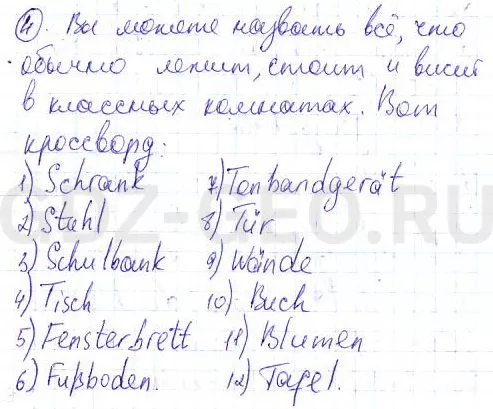 4. Вы можете назвать всё, что
обычно лежит, стоит и висит
в классных комнатах. Вот
кроссворд:
1) Schrank 7) Tonbandgerät
2) Stuhl 8) Tür
3) Schulbank 9) Wände
4) Tisch 10) Buch
5) Fensterbrett 11) Blumen
6) Fußboden. 12) Tafel.